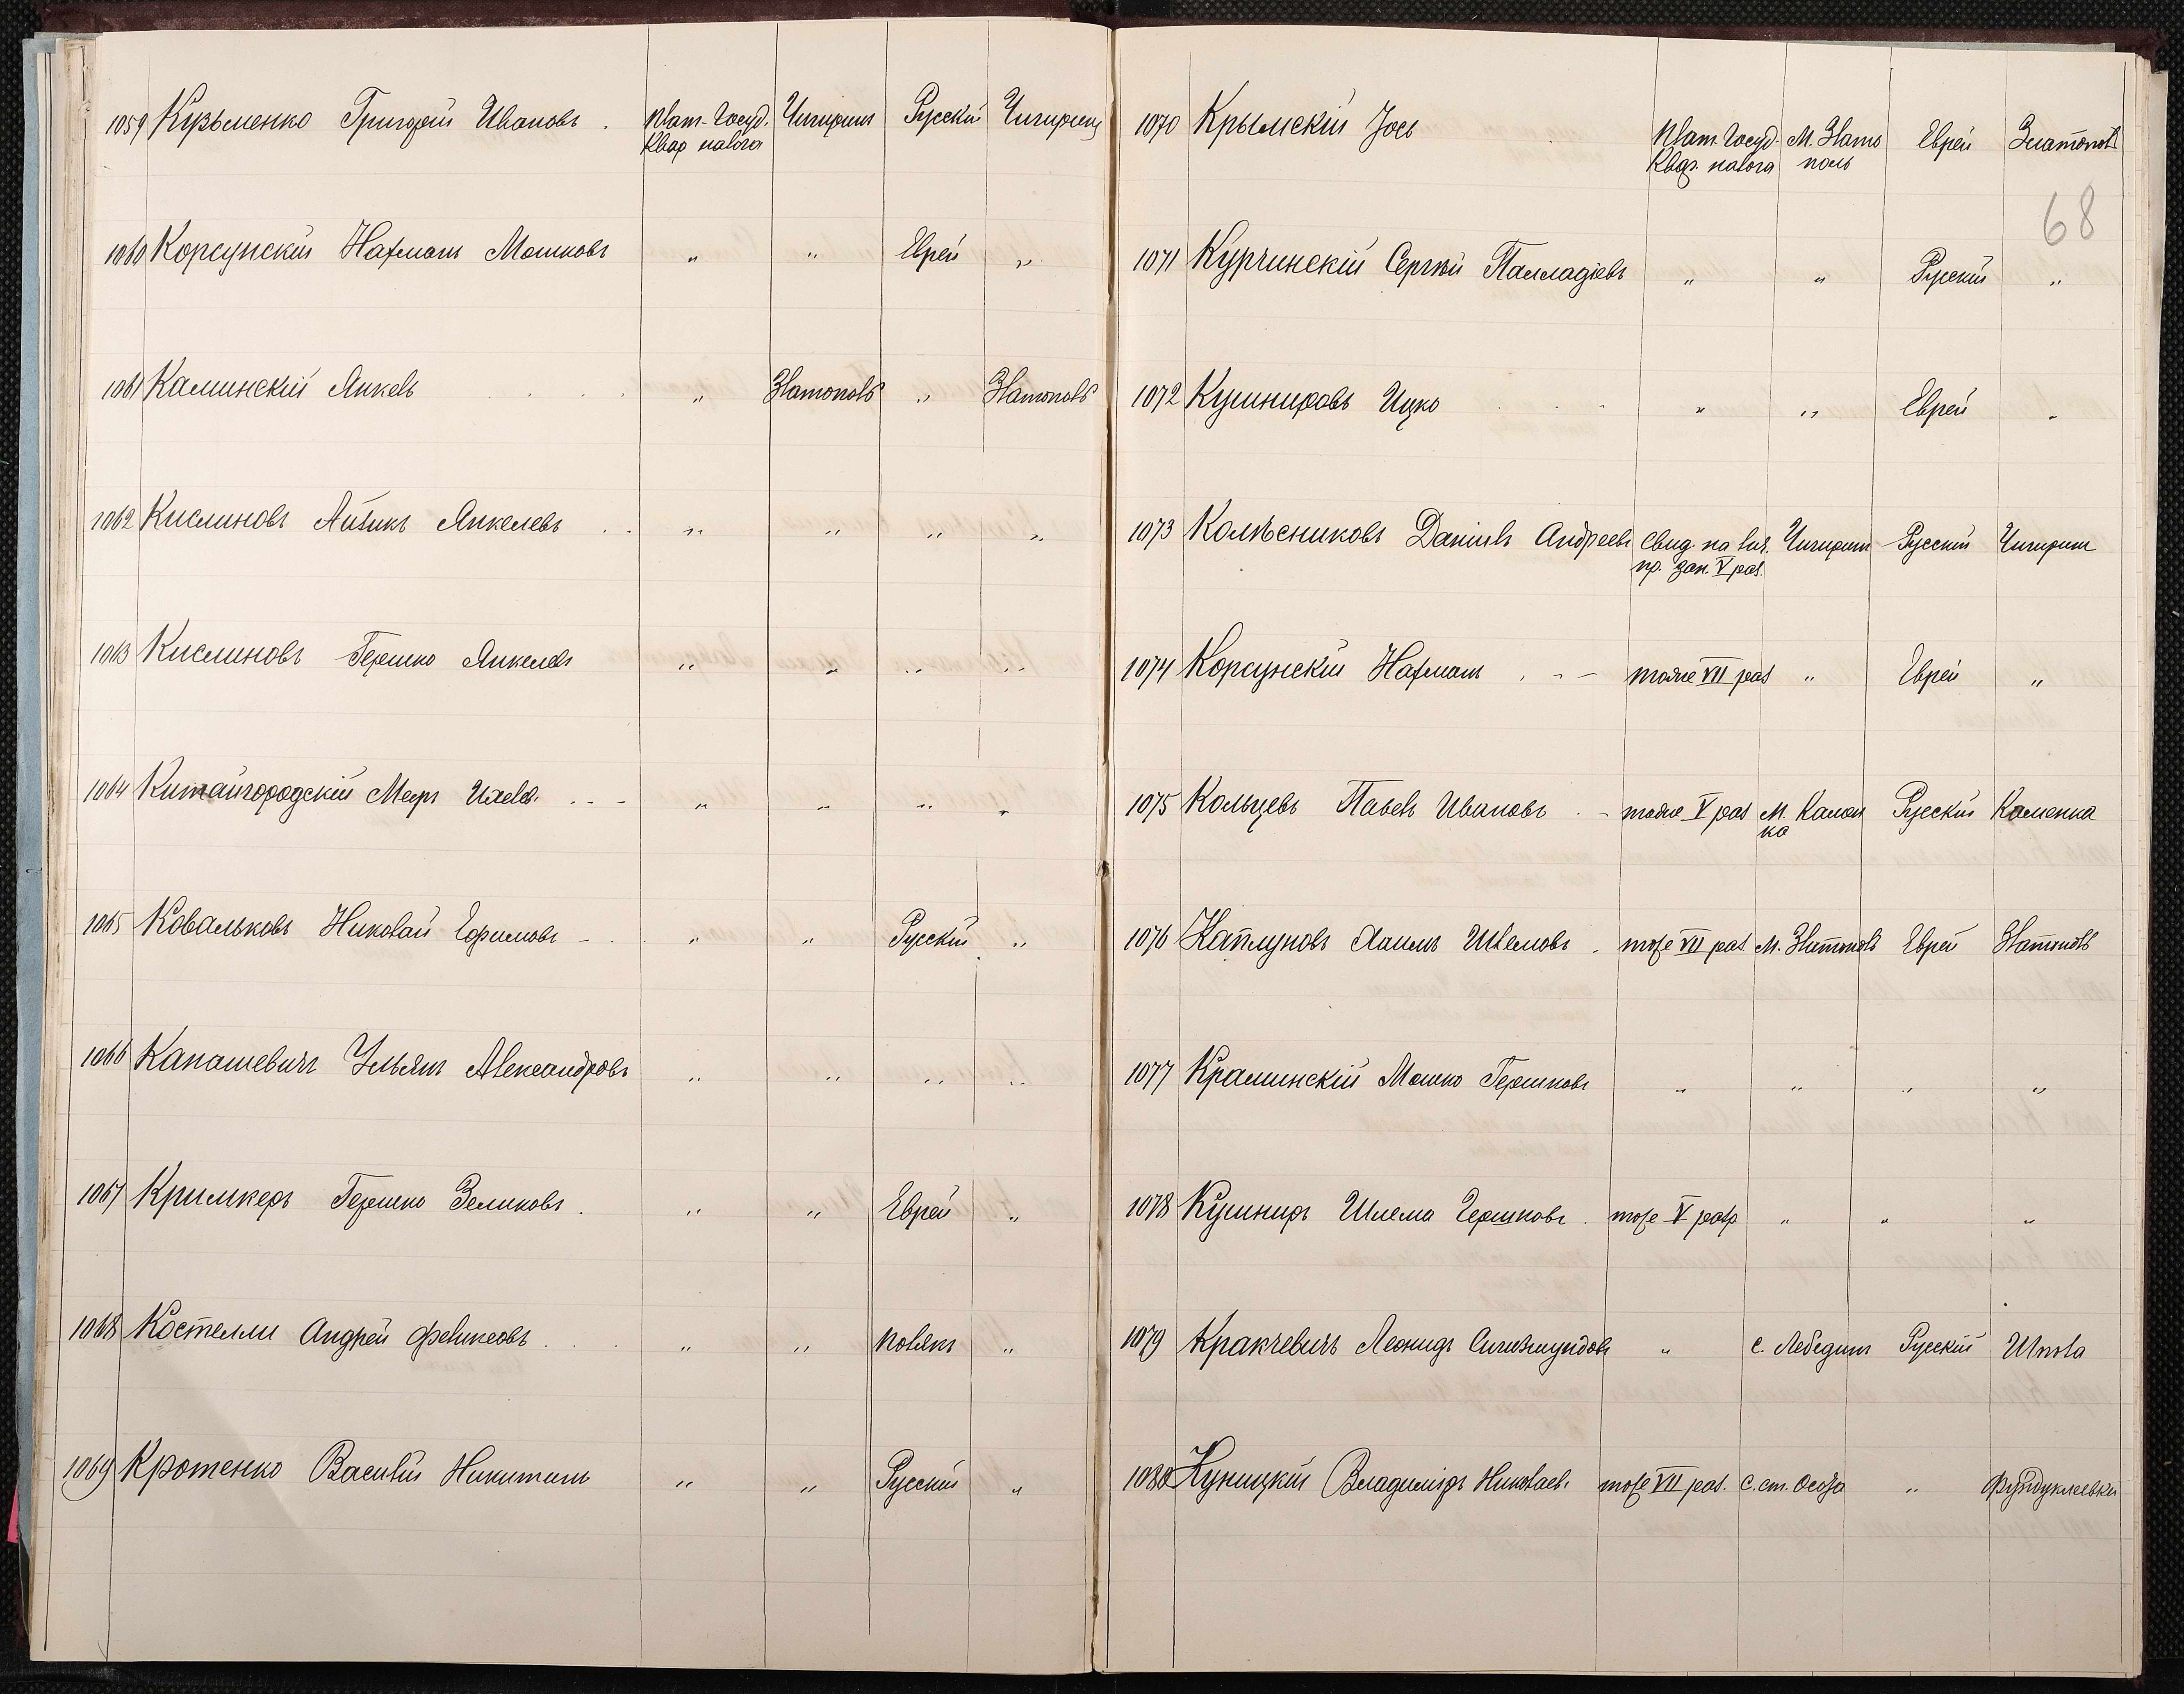 1059 Кузьменко Григорій Ивановъ . Плат. Госуд. Чигиринъ Русскій Чигиринъ
Квар налога
1060 Корсунскій Нахманъ Мошковъ " " Еврей "
1061 Калинскій Янкель " Златополь " Златополь
1062 Кислиновъ Айзикъ Янкелевъ " " " "
1063 Кислиновъ Гершко Янкелевъ " " " "
1064 Китайгородскій Меръ " " " "
1065 Ковальковъ Николай Ефимовъ " " Русскій "
1066 Капашевичъ Ульянъ Александровъ " " " "
1067 Кримкеръ Гершко Зеликовъ " " Еврей "
1068 Костелли Андрей Феликсовъ " " полякъ "
1069 Кротенко Василій Никитинъ " " Русскій "
1070 Крымскій Іось Плат. Госуд. М. Злато Еврей Златополь
Квар. налога поль
68
1071 Курчинскій Сергѣй Палладіевъ " " Русскій "
1072 Кушнировъ Ицко " " Еврей "
1073 Колѣсниковъ Даніилъ Андреевъ Свид. на Чигиринъ Русскій Чигиринъ
пр. зан. V раз.
1074 Корсунскій Нахманъ тоже VII раз " Еврей "
1075 Кольцевъ Павелъ Ивановъ тоже V раз М. Камен Русскій Каменка
ка
1076 Каплуновъ Хаимъ Шлемовъ тоже VII раз М. Златополь Еврей Златополь
1077 Краминскій Мошко Гершковъ " " " "
1078 Кушниръ Шлема Гершковъ тоже V разр " " "
1079 Кракчевичъ Леонидъ Сигизмундовъ " с. Лебединъ Русскій Шпола
1080 Куницкій Владиміръ Николаев. тоже VII раз. С. ст. Осота " Фундуклеевка